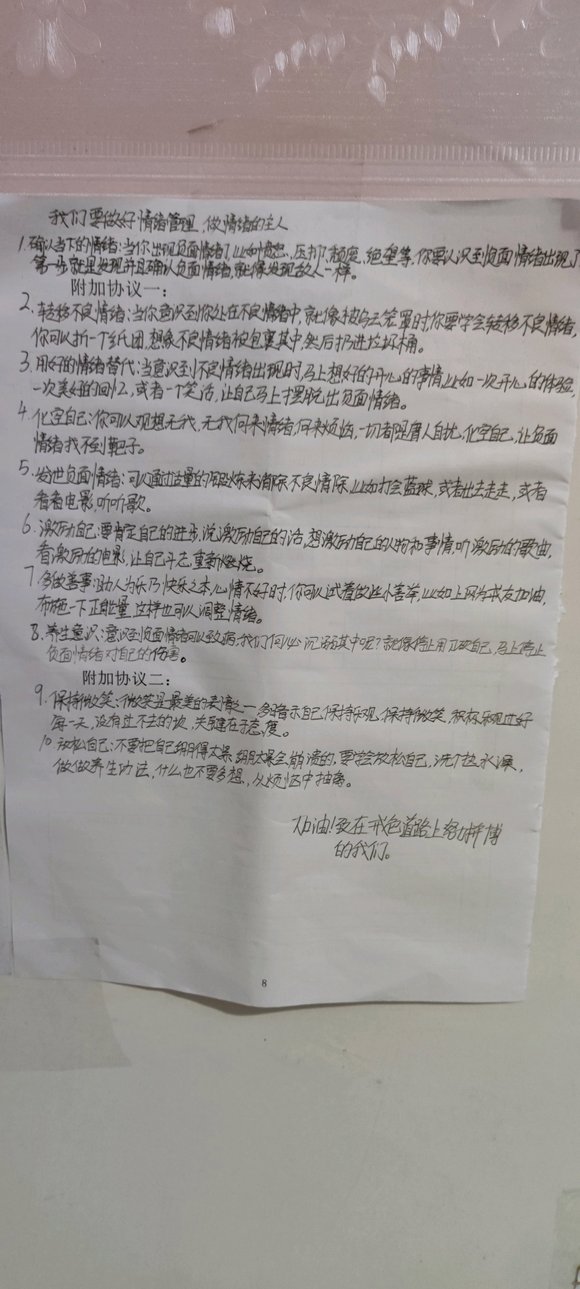 我们要做好情绪管理,做情绪的主人
1.确认当下的情绪:当你出现负面情绪了,比如愤怒、压抑、颓废、绝望等,你要认识到负面情绪出现了
第一步就是发现并且确认负面情绪,就像发现敌人一样。
附加协议一:
2.转移不良情绪:当你意识到你处在不良情绪中,就像被乌云笼罩时,你要学会转移不良情绪,
你可以折一个纸团,想象不良情绪被包裹其中然后扔进垃圾桶。
3.用好的情绪替代:当意识到不良情绪出现时,马上想好的开心的事情,比如一次开心的体验,
一次美好的回忆,或者一个笑话,让自己马上摆脱出负面情绪。
4.化空自己:你可以观想无我,无我何来情绪,何来烦恼,一切都是庸人自扰,化空自己,让负面
情绪找不到靶子。
5.发泄负面情绪:可以通过适量的锻炼来消除不良情除,比如打会蓝球,或者出去走走,或者
看看电影,听听歌。
6.激励自己:要肯定自己的进步,说激励自己的话,想激励自己的人物和事情,听激励的歌曲,
看激励的电影,让自己斗志重新燃烧。
7.多做善事:助人为乐乃快乐之本,心情不好时,你可以试着做些小善举,比如上网为戒友加油,
布施一下正能量,这样也可以调整情绪。
8.养生意识:意识到负面情绪可以致病,我们何必沉溺其中呢?就像停止用刀砍自己,马上停止
负面情绪对自己的伤害。
附加协议二:
9.保持微笑:微笑是最美的表情之一,多暗示自己保持乐观,保持微笑,积极乐观过好
每一天,没有过不去的坎,关键在于态度。
10.放松自己:不要把自己绷得太累,绷太紧会崩溃的,要学会放松自己,洗个热水澡,
做做养生功法,什么也不要多想,从烦恼中抽离。
加油!致在戒色道路上努力拼博
的我们。
8